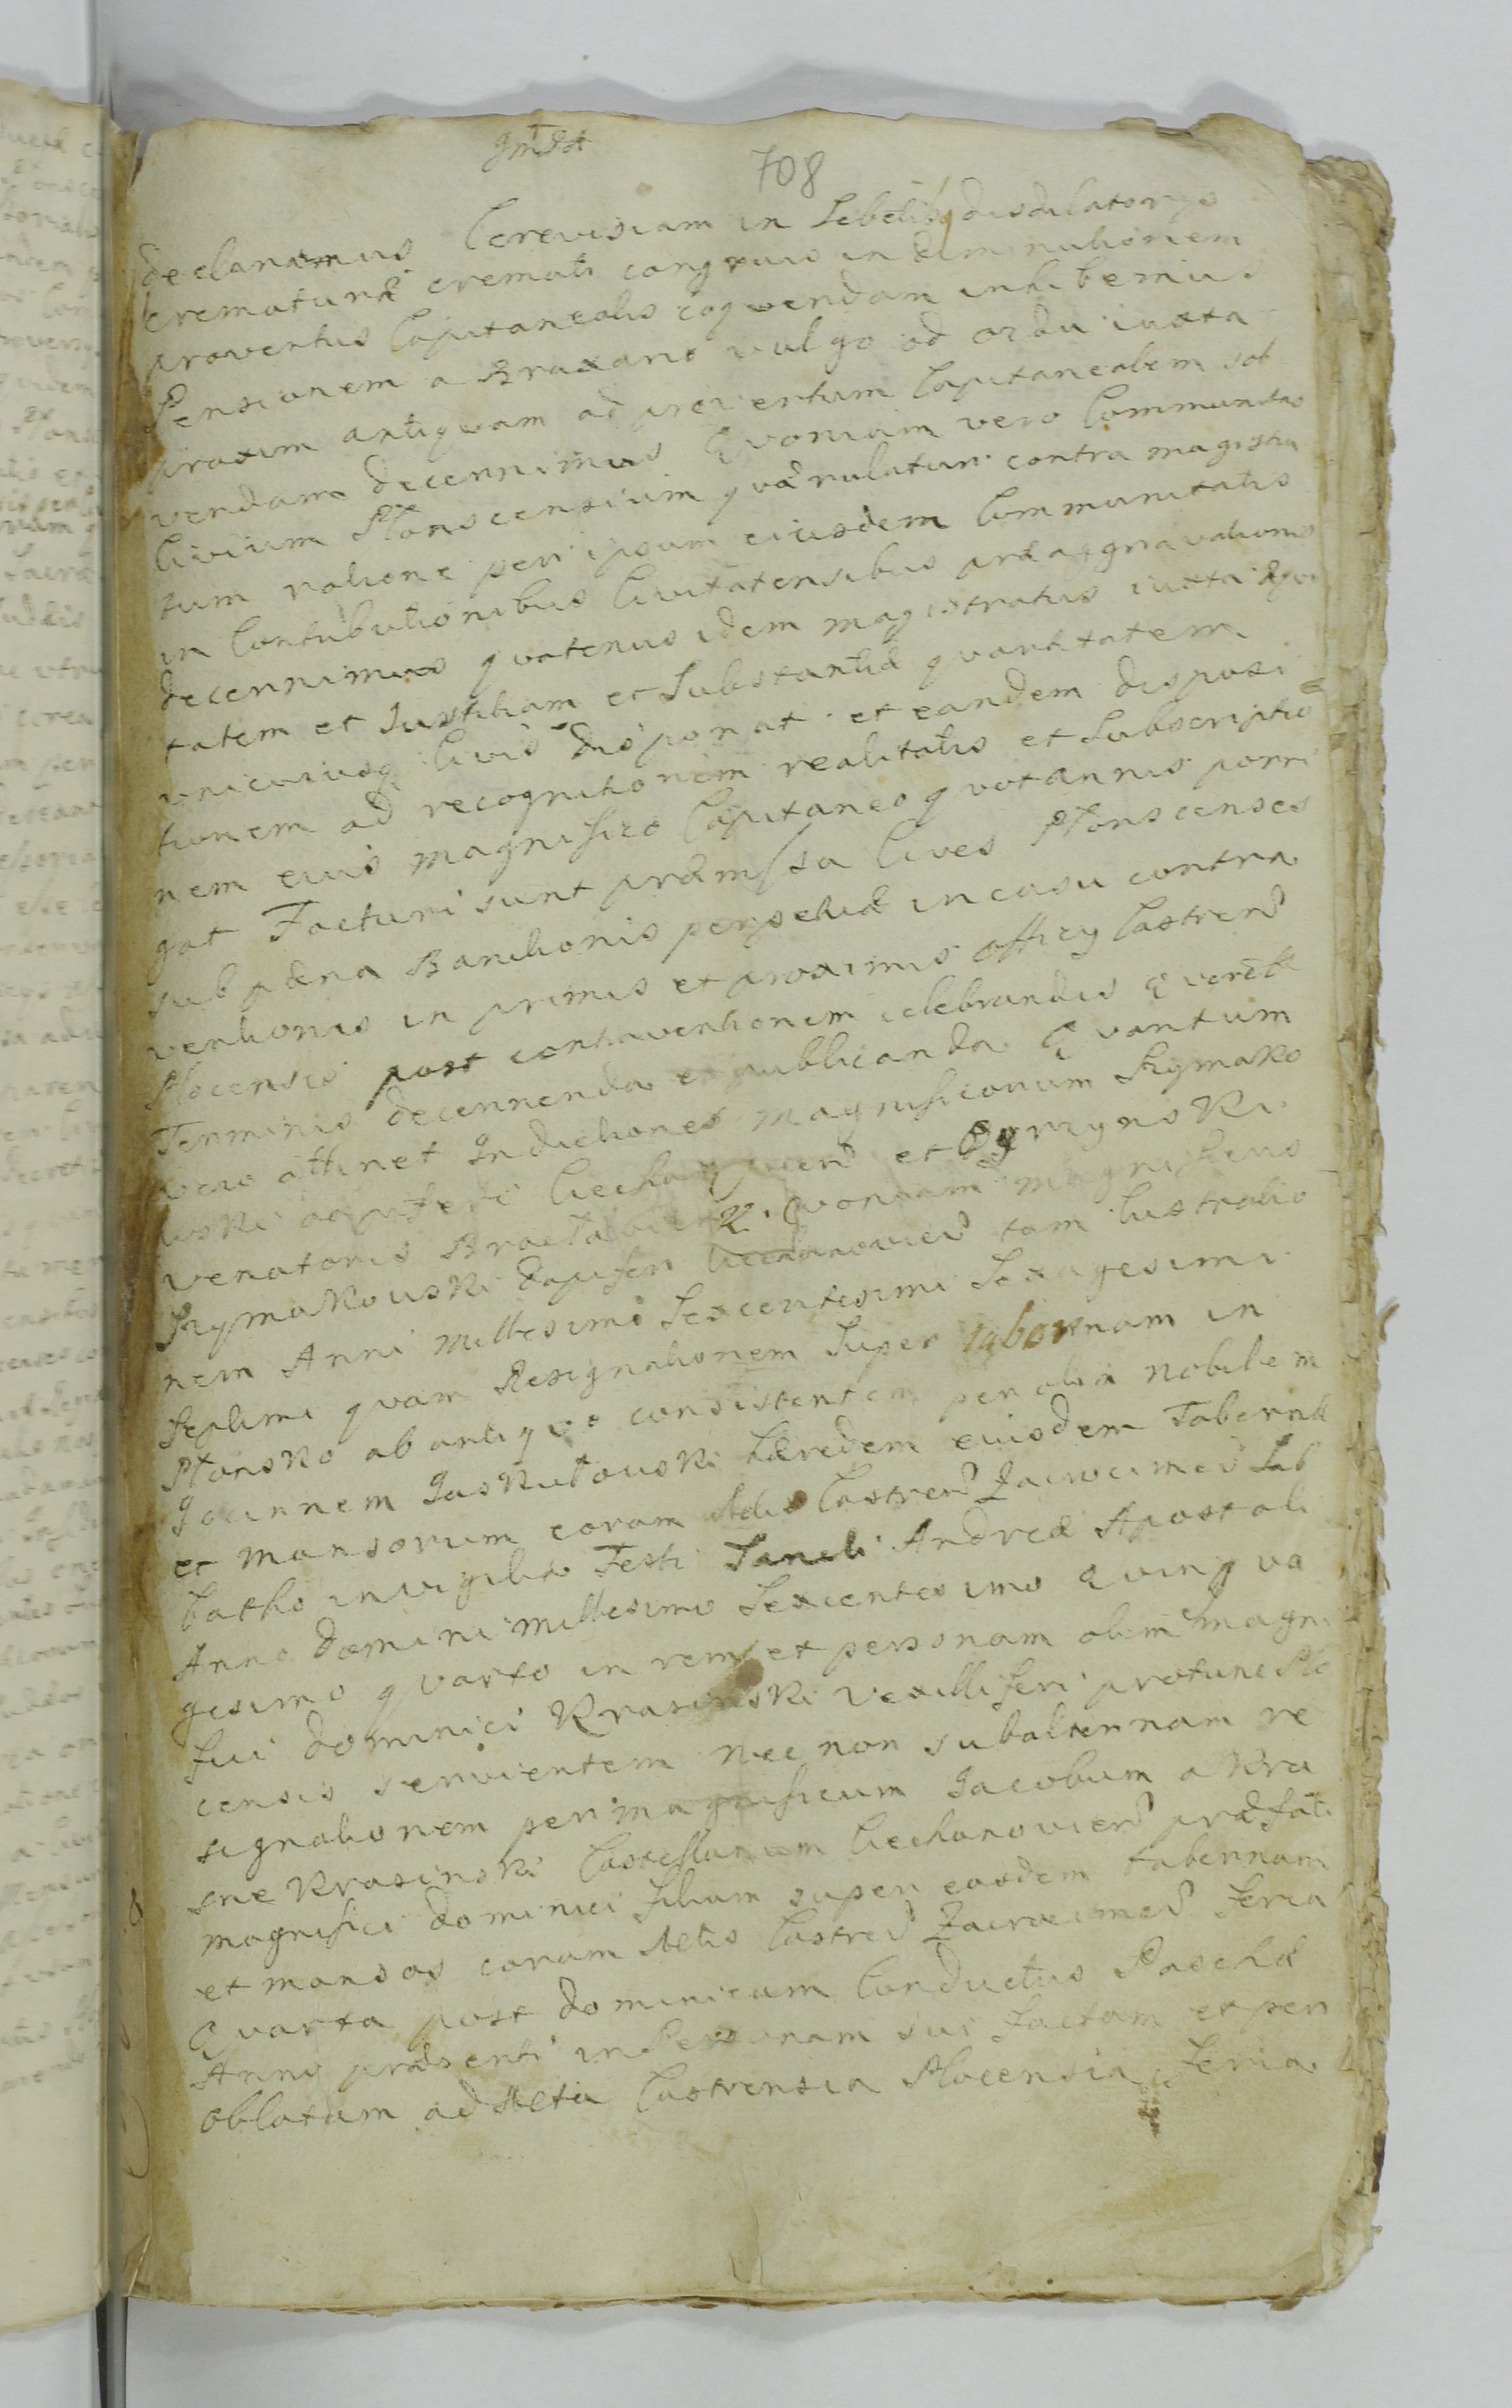 708
declaramus Cerevisiam in Lebetibq disdilatorys
crematurae cremati congruis in diminutionem
proventus Capitanealis coqvendam inhibemus
Pensionem a Braxano vulgo od ordu iuxta
praxim antiqvam ad proventum Capitanealem sol
vendam decernimus Qvoniam vero Communitas
Civium Płonscensium qværulatur contra magistra
tum ratione per ipsum eiusdem Communitatis
in Contributionibus Civitatensibus præaggravationis
decernimus qvatenus idem magistratus iuxta æqvi
tatem et Justitiam et Substantiæ qvantitatem
unicuiusq Civis disponat et eandem disposi
tionem ad recognitionem realitatis et Subscriptio
nem eius magnifico Capitaneo qvotannis porri
gat Facturi sunt præmissa Cives Płonscenses
sub pæna Banitionis perpetuæ in casu contra
ventionis in primis et proximis officy Castren
Plocensis post contraventionem celebrandis
Terminis decernenda et publicanda Qvantum
vero attinet Indictiones magnificorum Szymako
wski dapiferi Ciechanovien et
venatoris Qvoniam magnificus
Szymakowski dapifer Ciechanovien tam lustratio
nem Anni millesimi Sexcentesimi Sexagesimi
Septimi qvam Resignationem Super tabernam in
Płonsko ab antiqvo consistentem per olim Nobilem
Joannem Jaskułowski hæredem eiusdem Tabernæ
et mansorum coram Actis Castren Zacrocimen Sab
batho in vigilia Festi Sancti Andreæ Apostoli
Anno domini millesimo Sexcentesimo Qvinqva
gesimo qvarto in rem et personam olim magni
fici dominici Krasinski vexilliferi protunc Plo
censis servientem nec non subalternam re
signationem per magnificum Jacobum a Kra
sne Krasinski Castellanum Ciechanovien præfati
magnifici dominici filium super easdem tabernam
et mansos coram Actis Castren Zacrocimen Feria
Qvarta post dominicam Conductus Paschæ
Anno præsenti in Personam sui factam et per
oblatam ad Acta Castrensia Plocensia Feria